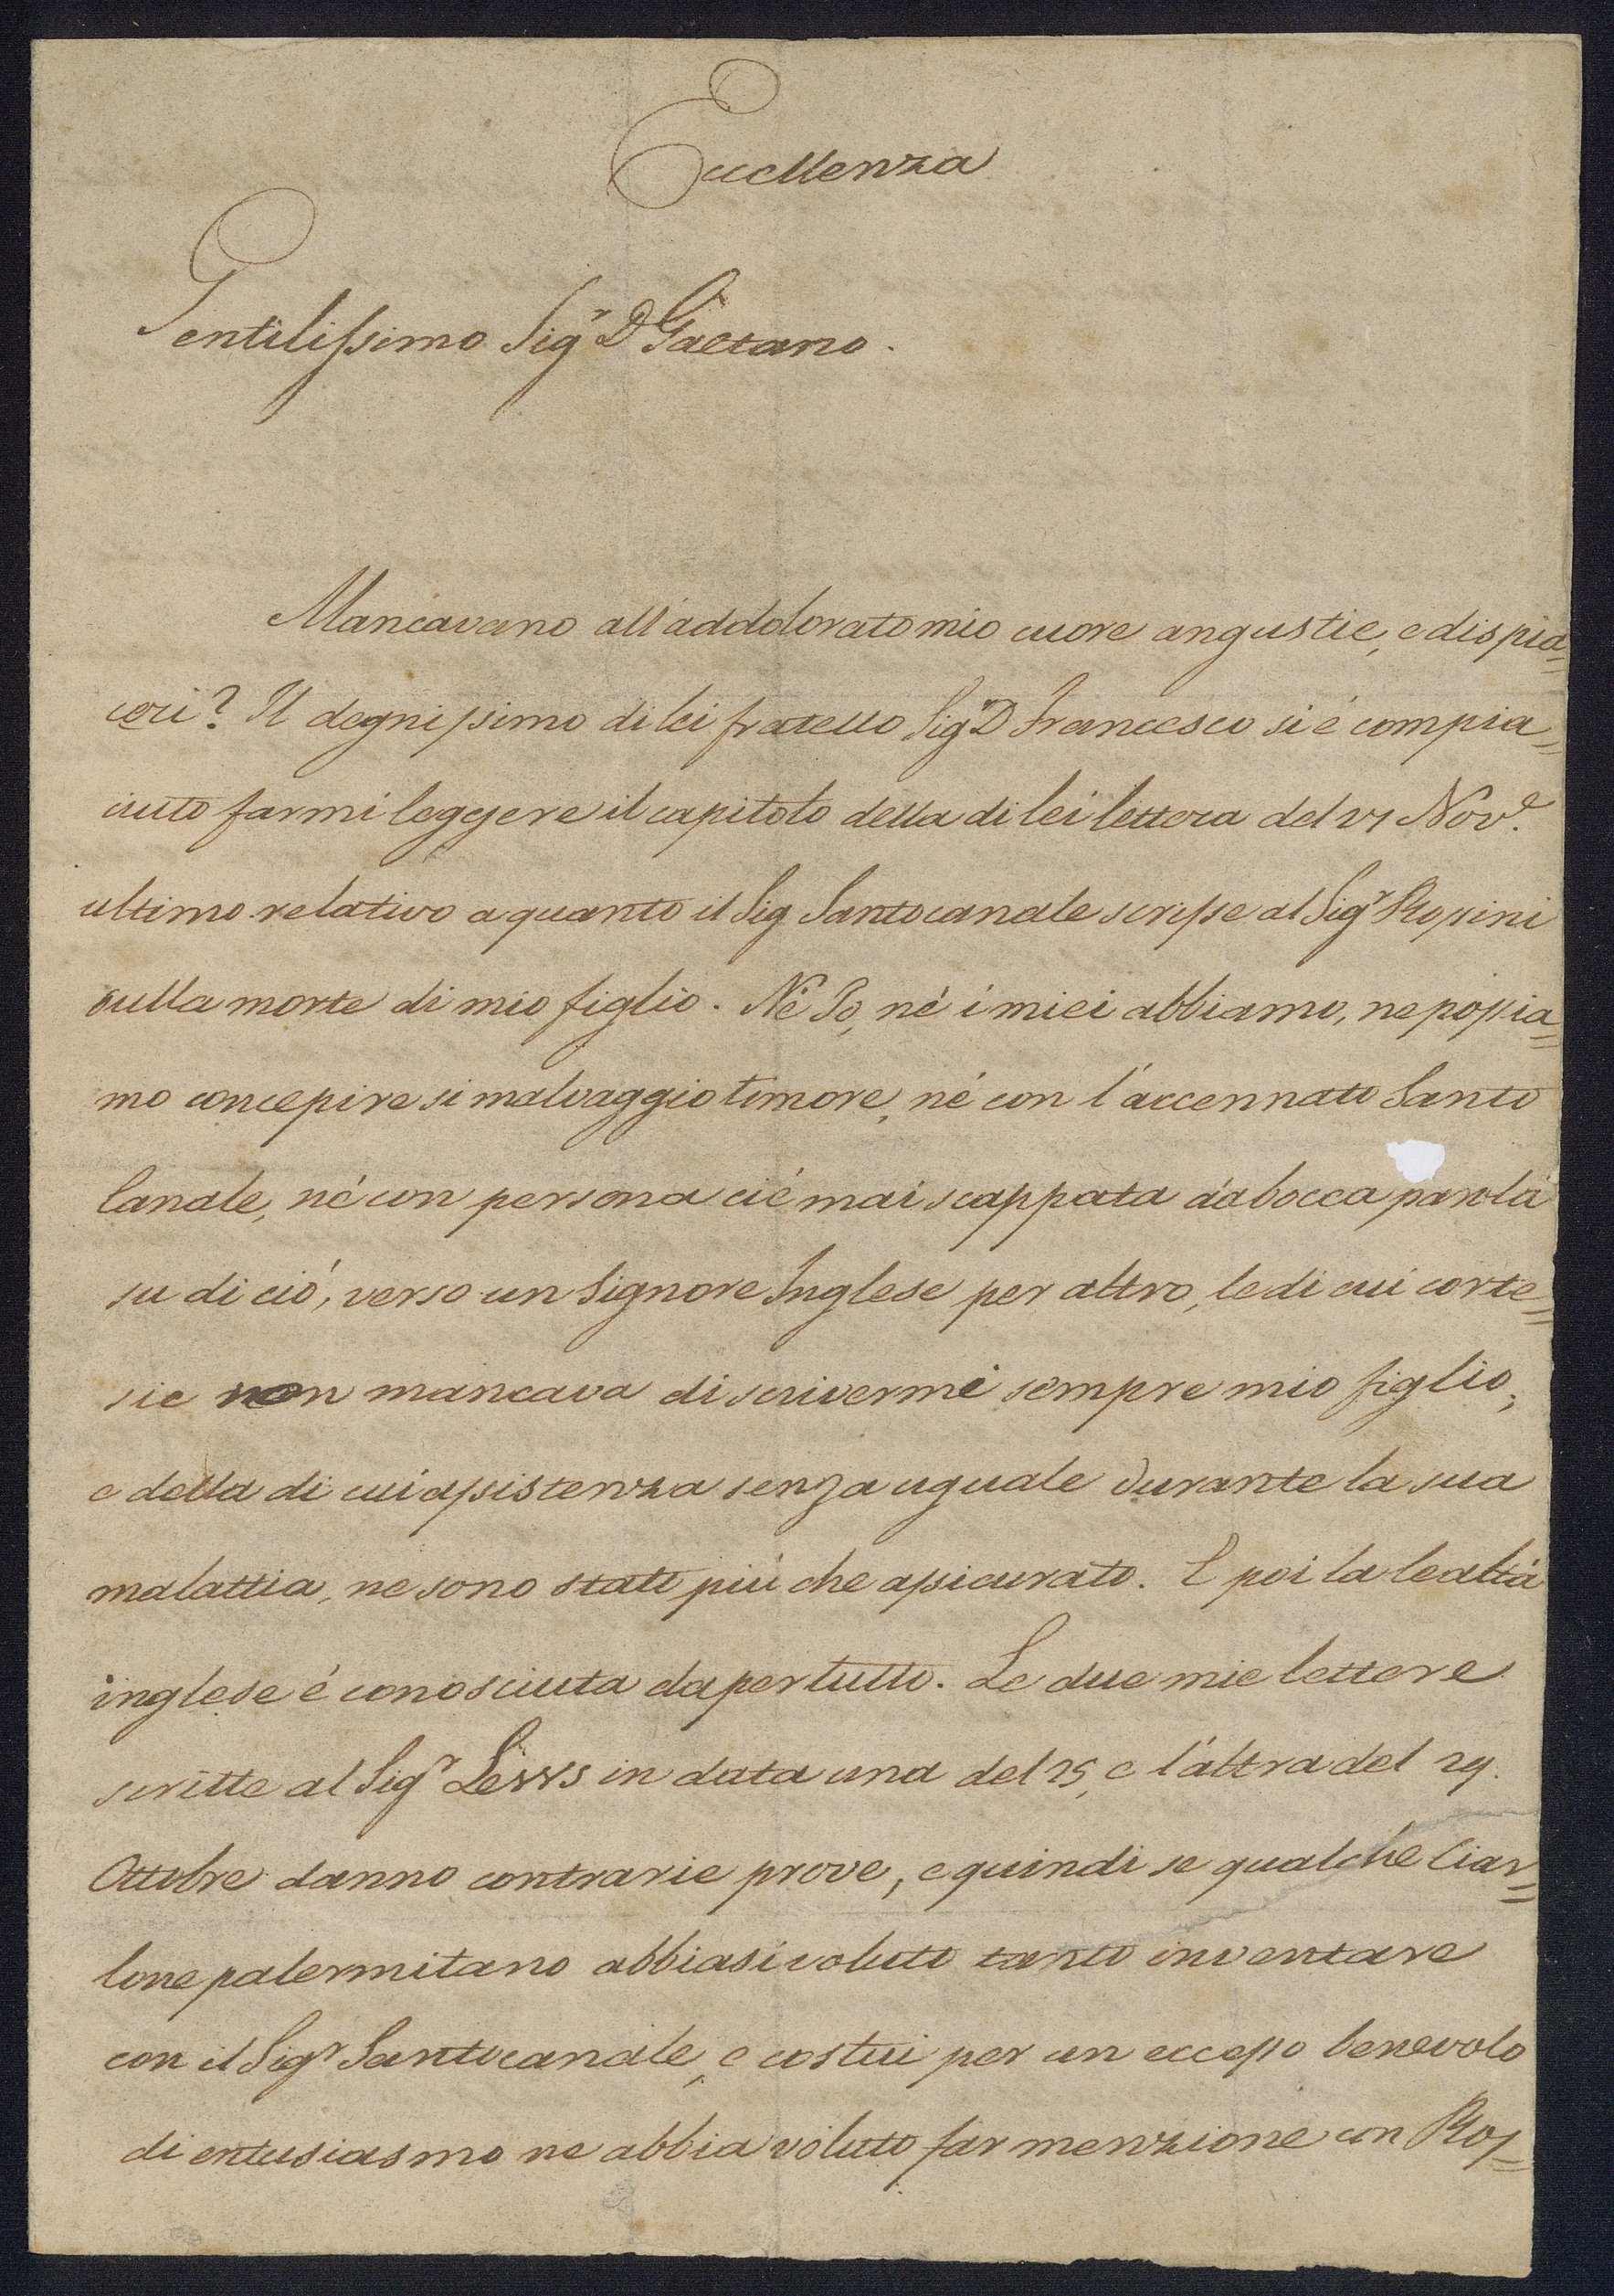 Eccellenza
Gentilissimo Sigr. D Gaetano.
Mancavano all'addolorato mio cuore angustie, e dispia=
ceri? Il degnissimo di lei fratello Sigr D Francesco si é compia=
ciuto farmi leggere il capitolo della di lei lettera del 21 Nove.
ultimo relativo a quanto il Sig Santocanale scrisse al Sigr Rossini
sulla morte di mio figlio. Nè Io, nè i miei abbiamo, ne possia=
mo concepire si malvaggio timore, né con l'accennato Santo
Canale, né con persona ci é mai scappata da bocca parola
su di ció, verso un Signore Inglese per altro, le di cui corte=
sie non mancava di scrivermi sempre mio figlio;
e della di cui assistenza senza uguale durante la sua
malattia, ne sono stato piú che assicurato. E poi la lealtà
inglese é conosciuta dapertutto. Le due mie lettere
scritte al Sigr Lewis in data una del 25, e l'altra del 29.
Ottobre danno contrarie prove, e quindi se qualche Ciar=
lone palermitano abbiasi voluto tanto inventare
con il Sigr Santocanale, e costui per un eccesso benevolo
di entusiasmo ne abbia voluto far menzione con Ros=